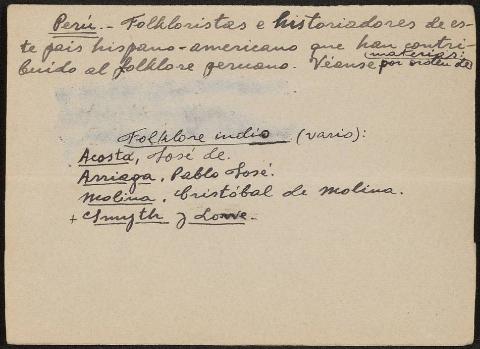 Perú.- Folkloristas e historiadores de es-
te pais hispano-americano que han contri-
buido al folklore peruano. Véanse por orden de
(materias:
Folklore indio (vario):
Acosta, José de.
Arriaga, Pablo José.
Molina, Cristóbal de Molina.
+ Smyth y Lowe.